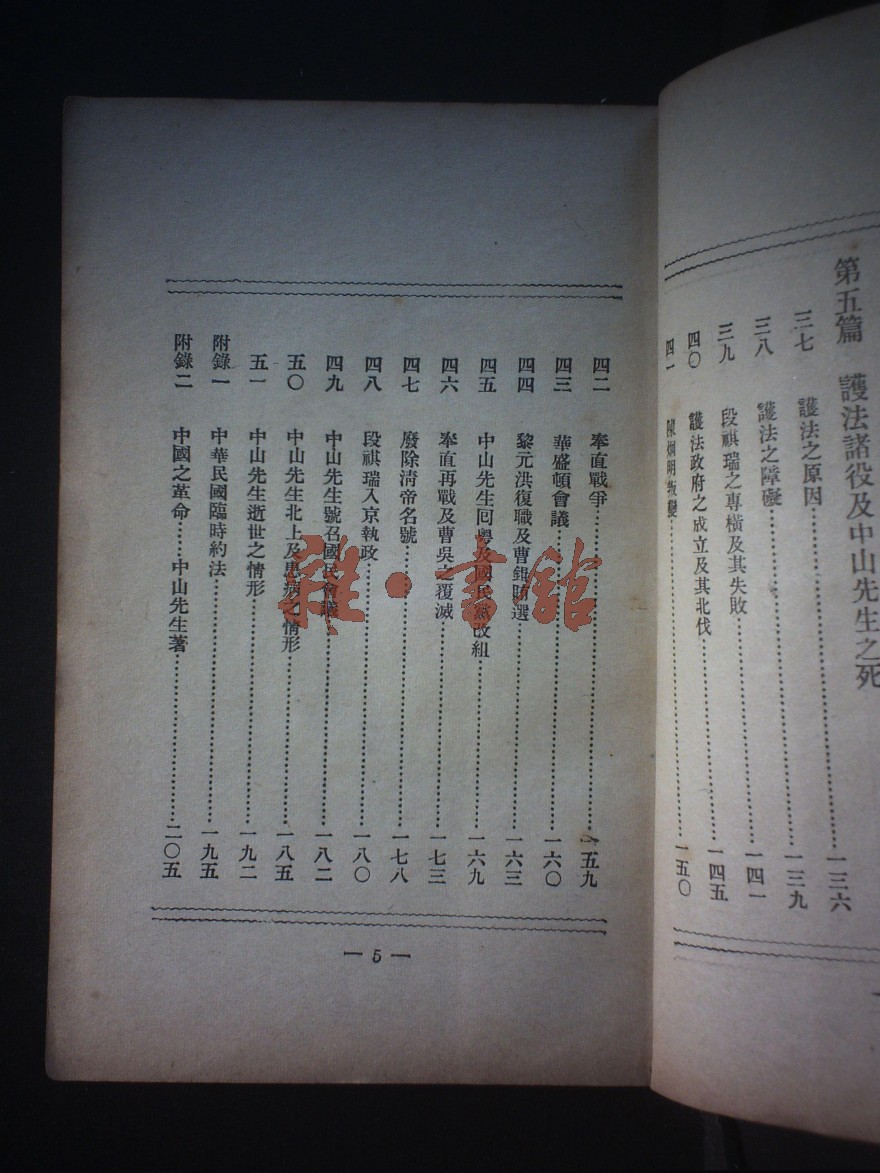 第五篇　護法諸役及中山先生之死
三七　護法之原因……一三六
三八　護法之障礙……一三九
三九　段祺瑞之專橫及其失敗……一四一
四〇　護法政府之成立及其北伐……一四五
四一　陳烱明叛變……一五〇
四二　奉直戰爭……一五九
四三　華盛頓會議……一六〇
四四　黎元洪復職及曹錕賄選……一六三
四五　中山先生囘粵及國民黨改組……一六九
四六　奉直再戰及曹吳之覆滅……一七三
四七　廢除淸帝名號……一七八
四八　段祺瑞入京執政……一八〇
四九　中山先生號召國民會議……一八二
五〇　中山先生北上及患病之情形……一八五
五一　中山先生逝世之情形……一九二
附錄一　中華民國臨時約法……一九五
附錄二　中國之革命……中山先生著……二〇五
— 5 —
雜·書館